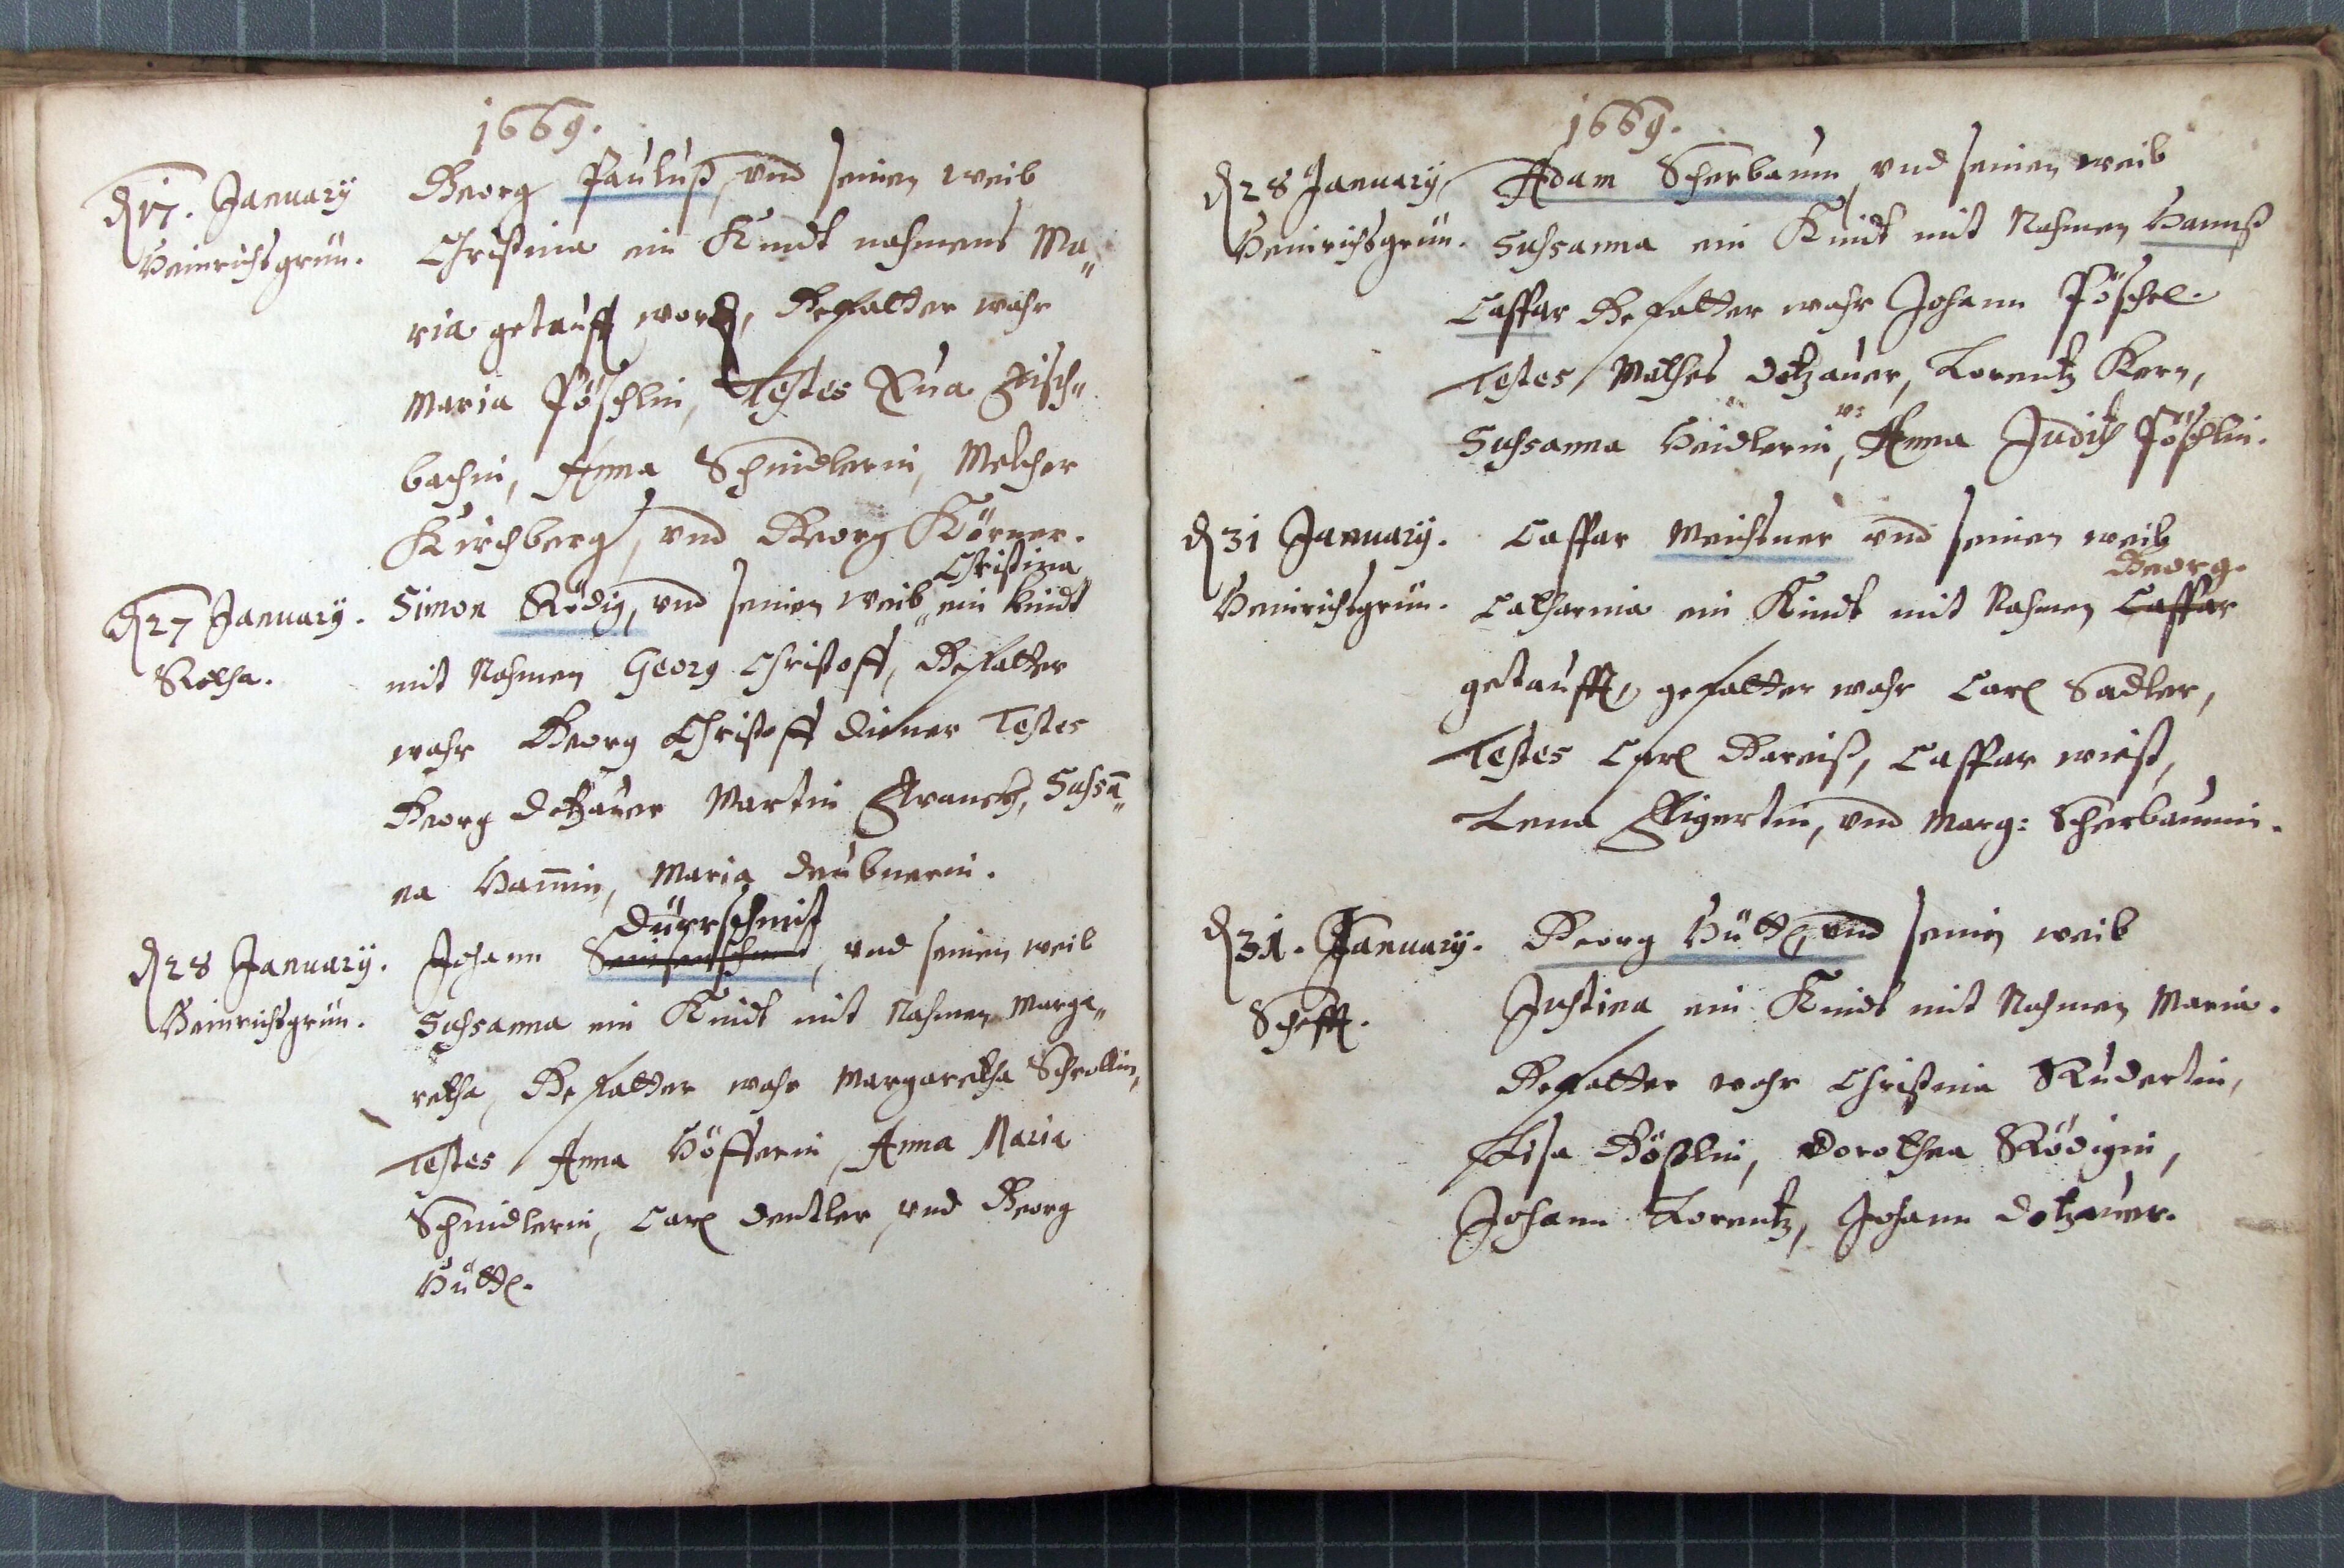 1669.
d 17. January
Heinrichsgrün.
Georg Pauluß, vnd seinen weib
Christina ein Kindt nahmens Ma„
ria getaufft word, Gefatter wahr
Maria Pöschlin, Testes Eua Fisch„
bachin, Anna Schindlerin, Melcher
Kirchberg, vnd Georg Körner.
d 27 January.
Rotha.
Christina
Simon Rödig, vnd seinen weib„ ein kindt
mit Nahmen Georg Christoff, Gefatter
wahr Georg Christoff diener Testes
Georg dotzauer Martin Franck, Sussa„
na Hannin, Maria deubnerin.
d 28 January.
Heinrichsgrün.
dürrschmit
Johann, vnd seinen weib
Sussanna ein Kindt mit Nahmen Marga„
retha, Gefatter wahr Margaretha Schrollin,
Testes Anna Höfferin, Anna Maria
Schindlerin, Carl dentler, vnd Georg
Hüttl.
1669.
d 28 January
Heinrichsgrün.
Adam Scherbaum vnd seinen weib
Sussanna ein Kindt mit Nahmen Hannß
Casspar Gefatter wahr Johann Pöschel.
Testes Mathes dotzauer, Lorentz Kern,
Sussanna Heidlerin, v: Anna Judith Pöschlin.
d 31 January.
Heinrichsgrün.
Casspar Meichsner vnd seinen weib
Georg.
Catharina ein Kindt mit Nahmen Casspar
getaufft, gefatter wahr Carl Sadler,
Testes Carl Bareiß, Casspar wiest,
Lena, vnd Marg: Scherbaumin.
d 31. January.
Schefft.
Georg Hüttl, vnd seinen weib
Justina ein Kindt mit Nahmen Maria.
Gefatter wahr Christina Rudertin,
Lisa, Dorothea Rödigin,
Johann Lorentz, Johann dotzauer.